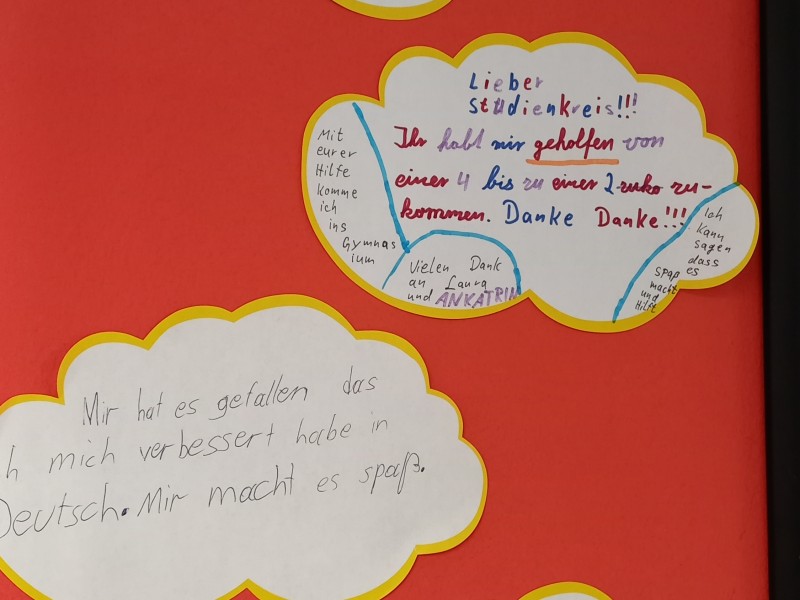 Lieber
Studienkreis!!!
Ihr habt mir geholfen von
einer 4 bis zu einer 2 zuko zu-
kommen. Danke Danke!!!
Mit
eurer
Hilfe
komme
ich
ins
Gymnas
ium
Vielen Dank
an Laura
und ANKATRIN
Ich
kann
sagen
dass
es
spaß
macht
und
Hilft
Mir hat es gefallen das
h mich verbessert habe in
Deutsch. Mir macht es spaß.